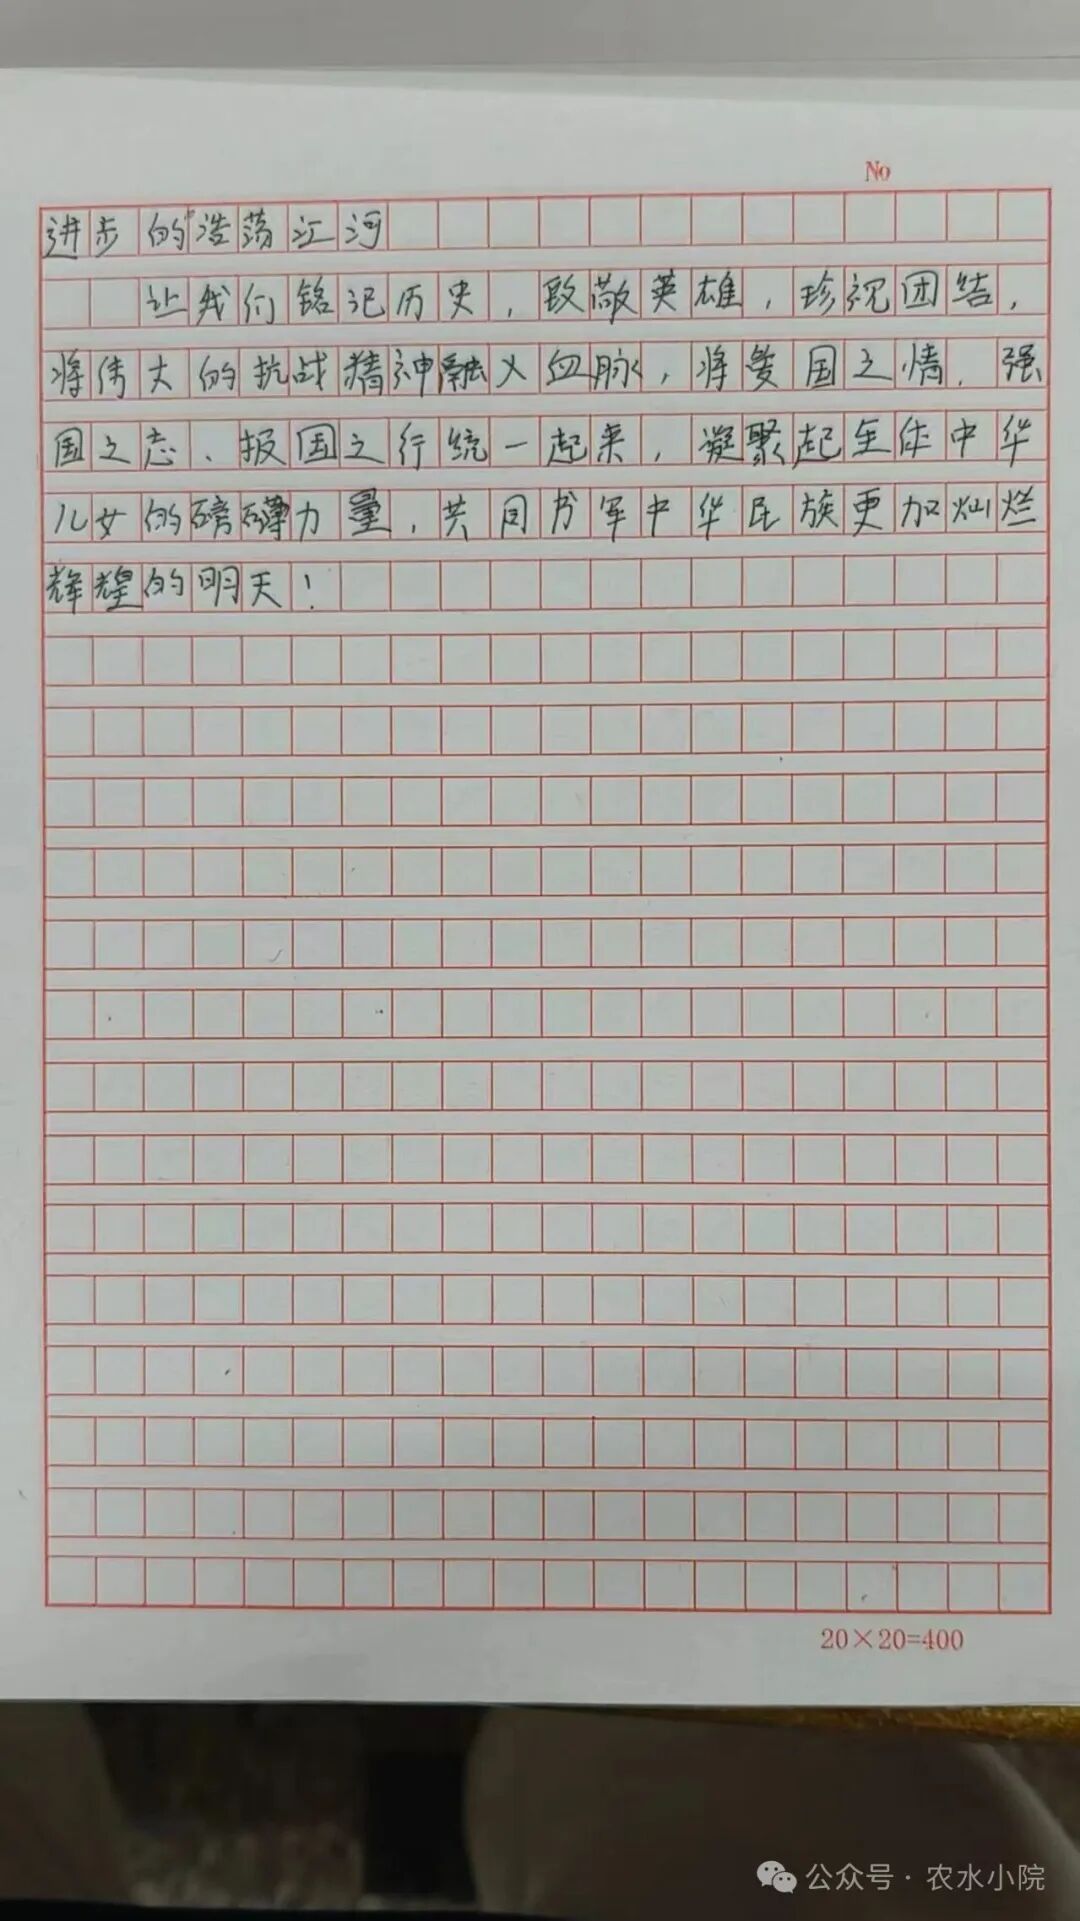 No
进步的浩荡江河
让我们铭记历史，致敬英雄，珍视团结，
将伟大的抗战精神融入血脉，将爱国之情、强
国之志、报国之行统一起来，凝聚起全体中华
儿女的磅礴力量，共同书写中华民族更加灿烂
辉煌的明天！
20×20=400
公众号·农水小院